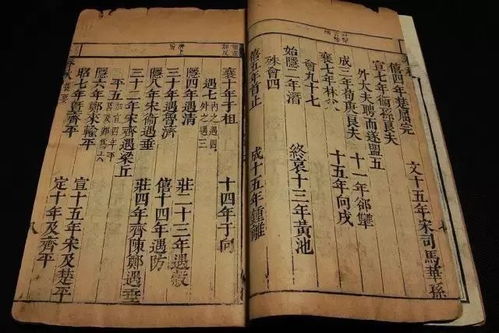 僖四年楚屈完 文十五年宋司馬華孫
宣七年衛孫良夫
外大夫聘而遂盟五
成三年荀庚良夫 十一年郤犨
襄七年林父 十五年向戌
會九十七
始隱二年潛 終哀十三年黃池
殊會四
僖五年首止 成十五年鍾離
襄十年于柤 十四年于向
遇七 內之遇四 外之遇三
隱四年遇清 莊二十三年遇穀
三十年遇濟 僖十四年遇防
隱八年宋衛遇垂 莊四年齊陳鄭遇垂
三十二年宋齊遇梁丘
平五
隱六年鄭輸平 宣十五年宋及楚平
昭七年暨齊平 定十年及齊平